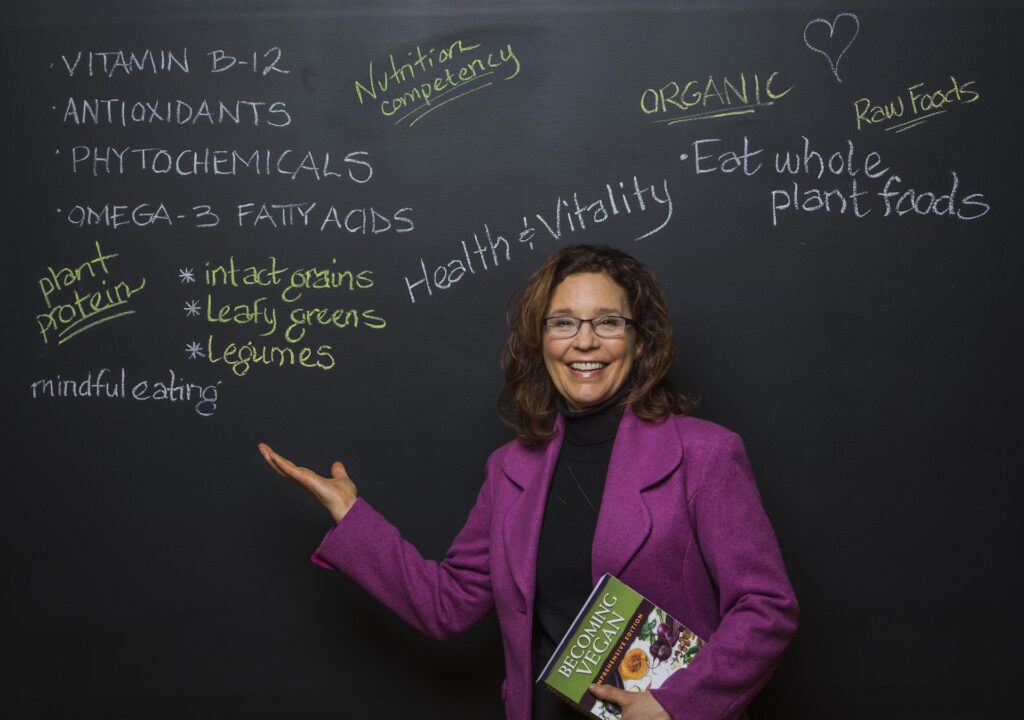 · VITAMIN B-12
· ANTIOXIDANTS
· PHYTOCHEMICALS
· OMEGA-3 FATTY ACIDS
plant
protein
* intact grains
* Leafy greens
* Legumes
mindful eating
Nutrition
competency
Health & Vitality
ORGANIC
Raw Foods
· Eat whole
plant foods
BECOMING
VEGAN
COMPREHENSIVE EDITION